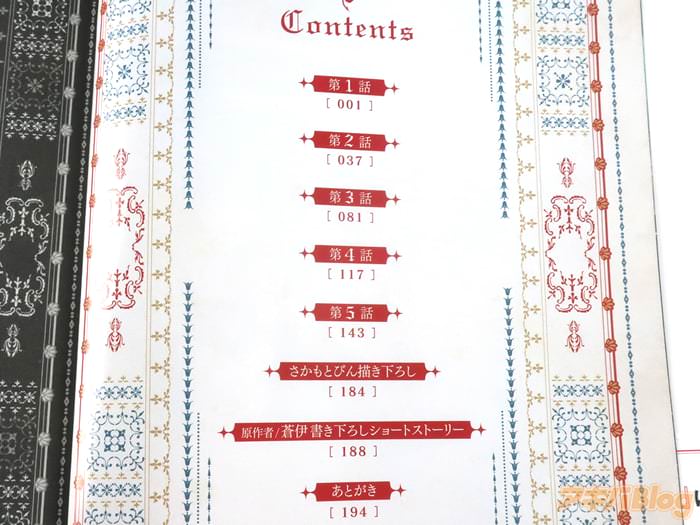 Contents
第1話
[ 001 ]
第2話
[ 037 ]
第3話
[ 081 ]
第4話
[ 117 ]
第5話
[ 143 ]
さかもとびん描き下ろし
[ 184 ]
原作者/蒼伊書き下ろしショートストーリー
[ 188 ]
あとがき
[ 194 ]
アキバBlog